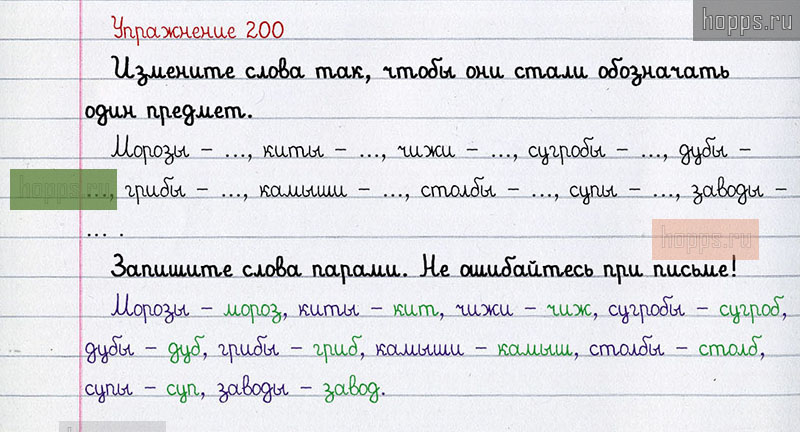 hopps.ru
Упражнение 200
Измените слова так, чтобы они стали обозначать
один предмет.
Морозы – ..., киты – ..., чижи – ..., сугробы – ..., дубы –
..., грибы – ..., камыши – ..., столбы – ..., супы – ..., заводы –
hopps.ru
... .
hopps.ru
Запишите слова парами. Не ошибайтесь при письме!
Морозы – мороз, киты – кит, чижи – чиж, сугробы – сугроб,
дубы – дуб, грибы – гриб, камыши – камыш, столбы – столб,
супы – суп, заводы – завод.